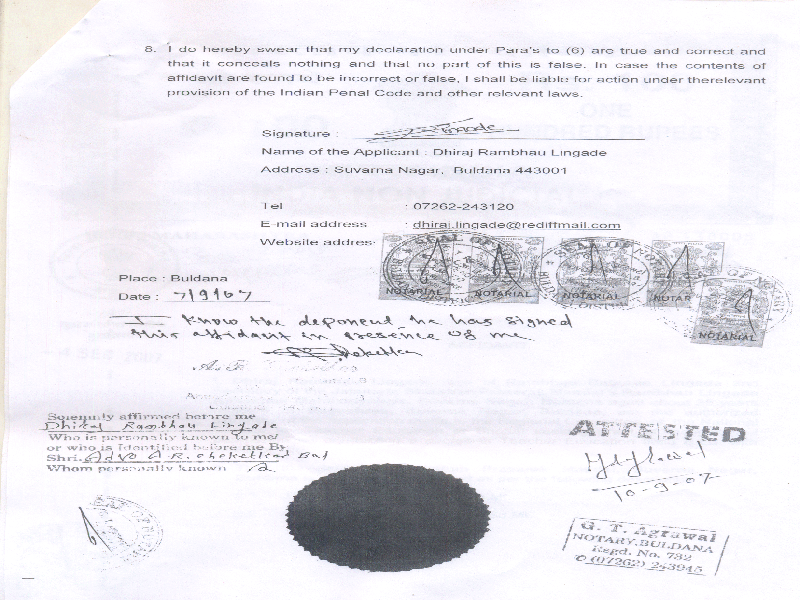 8. I do hereby swear that my declaration under Para's to (6) are true and correct and
that it conceals nothing and that no part of this is false. In case the contents of
affidavit are found to be incorrect or false, I shall be liable for action under therelevant
provision of the Indian Penal Code and other relevant laws.
ONE
HUNDRED RUPEES
Signature :
Name of the Applicant : Dhiraj Rambhau Lingade
Address : Suvarna Nagar, Buldana 443001
Tel : 07262-243120
E-mail address : dhiraj.lingade@rediffmail.com
Website address
SEAL OF NOTARY
SEAL OF NOTARY
NOTARIAL NOTARIAL NOTARIAL NOTARIAL NOTARIAL
Place : Buldana
Date : 7/9/07
I know the deponent he has signed
this affidavit in presence of me
Solemnly affirmed before me
Dhiraj Rambhau Lingade
Who is personally known to me/
or who is Identified before me By
Shri. Adv. A R.
Whom personally known
ATTESTED
10-9-07
G. T. Agrawal
NOTARY, BULDANA
Regd. No. 732
(07262) 243945